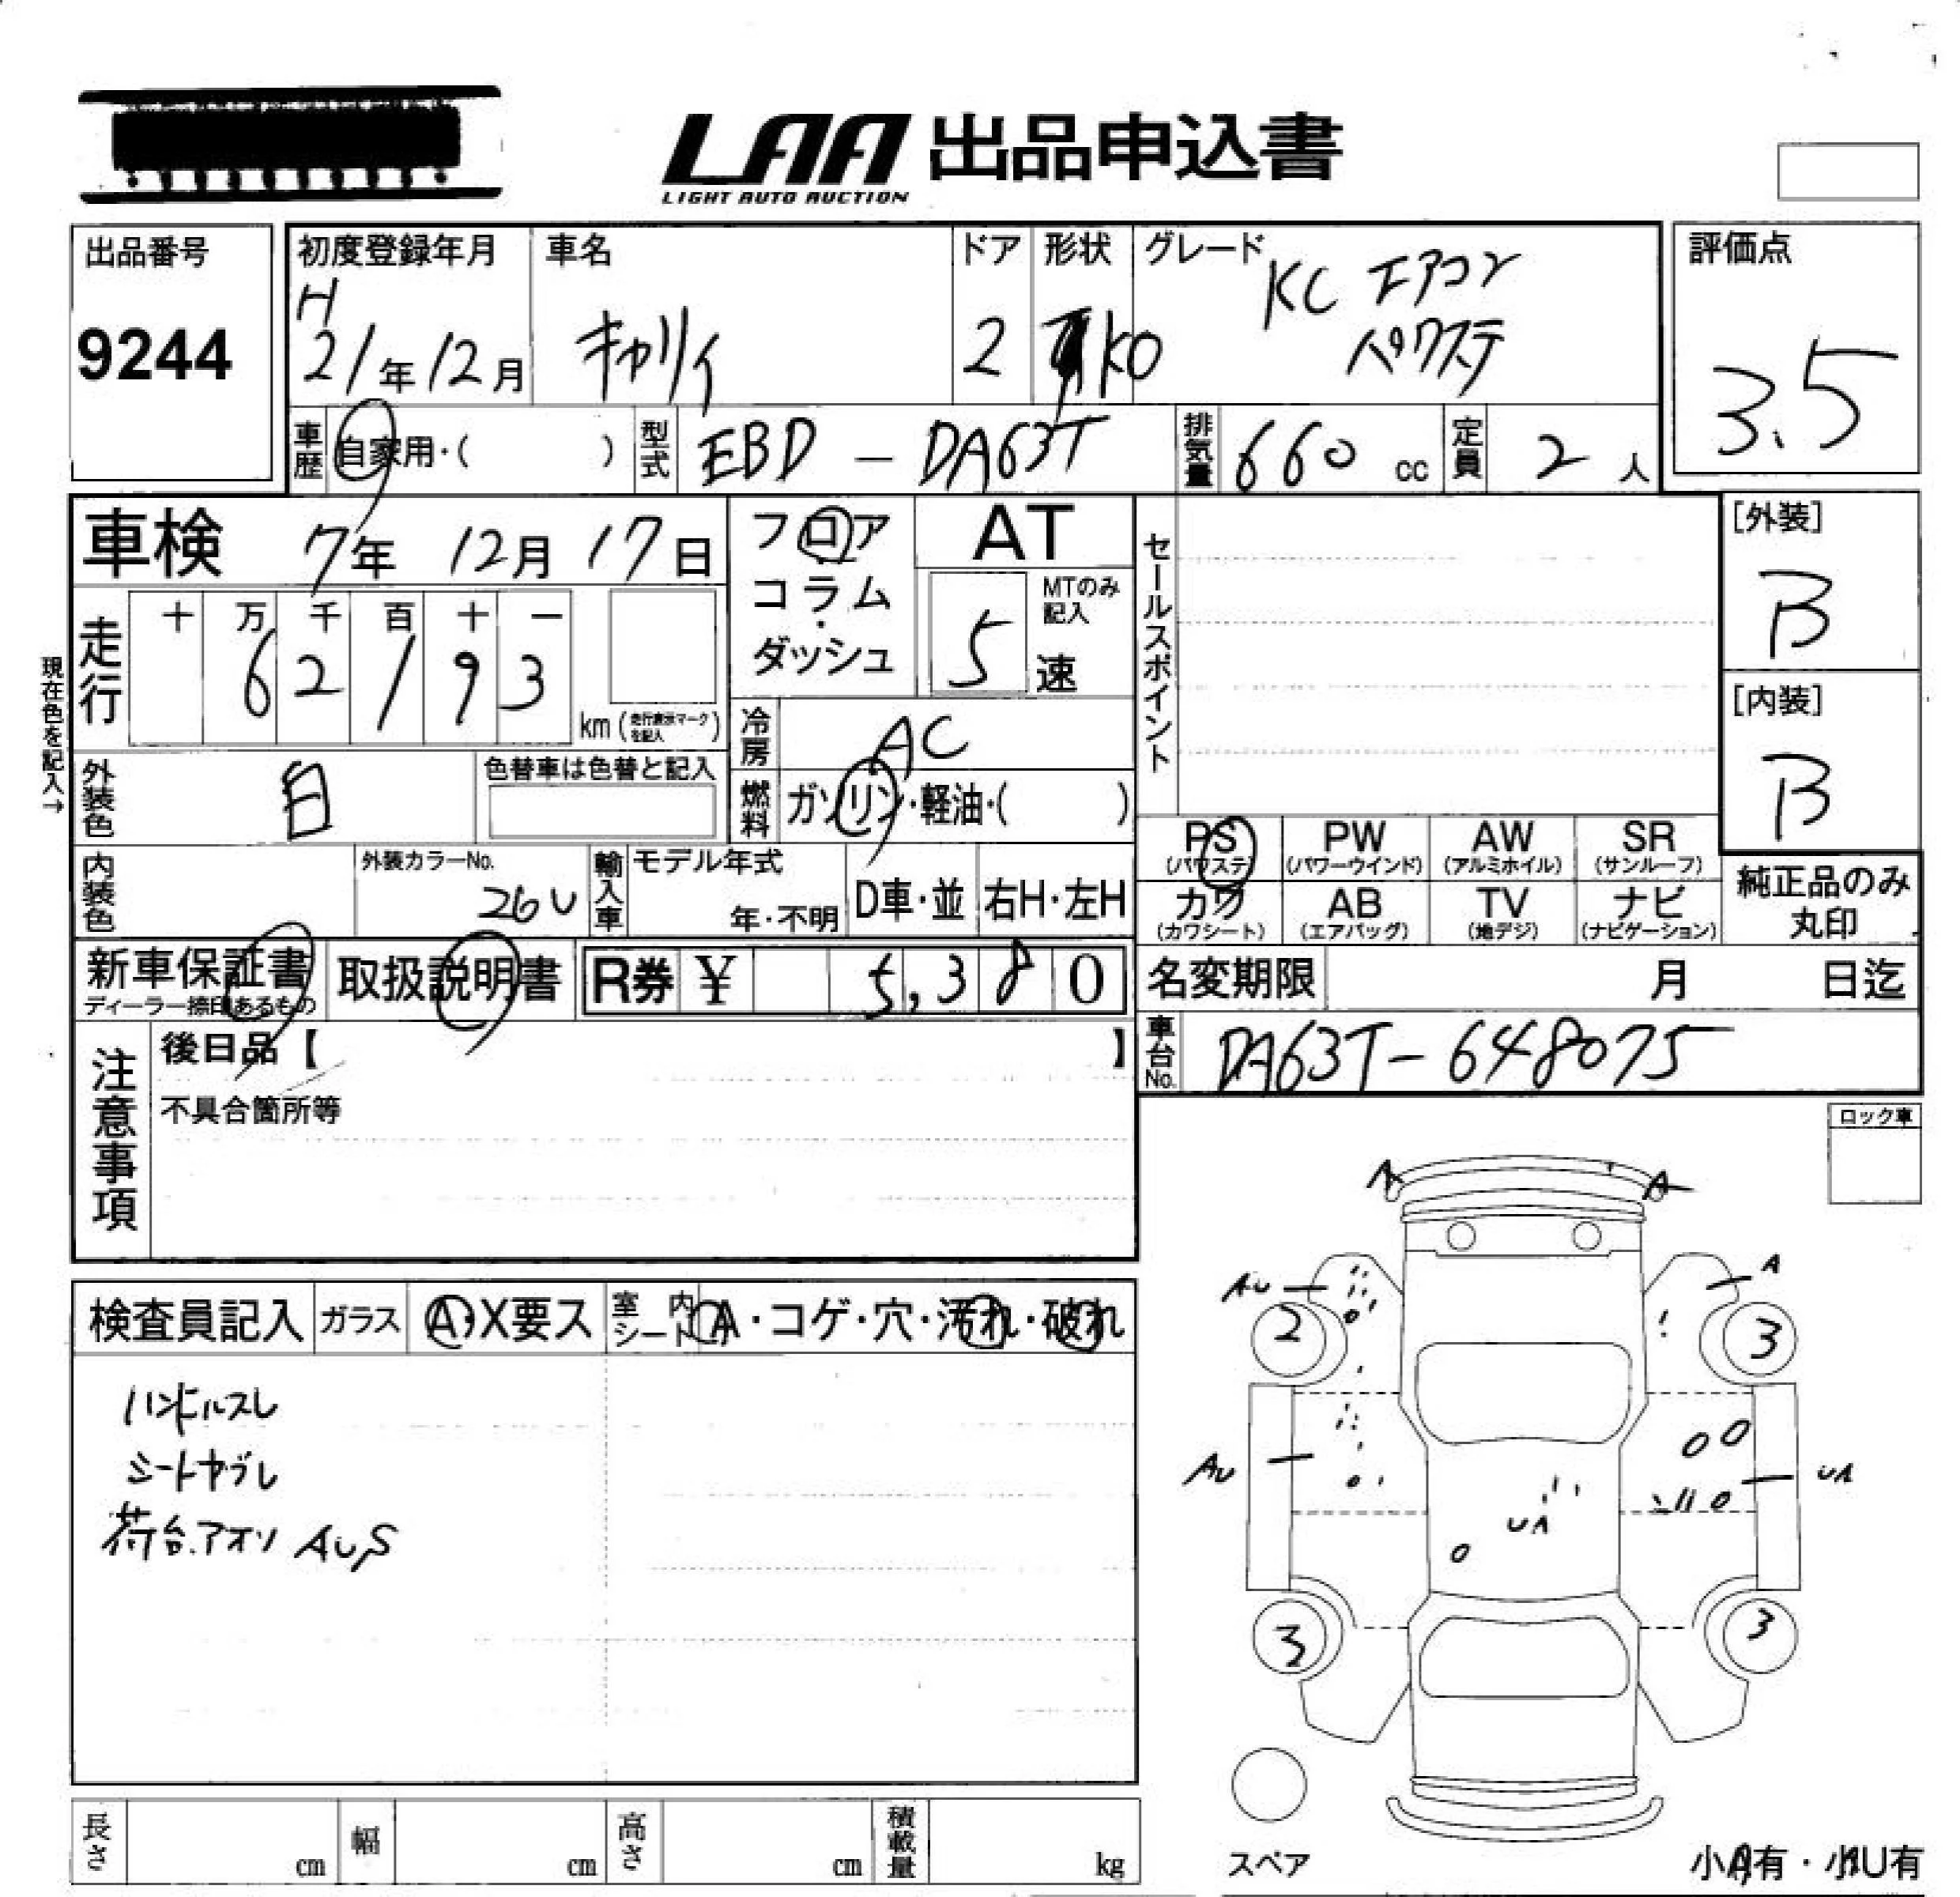 LAA 出品申込書
LIGHT AUTO AUCTION
出品番号
9244
初度登録年月
H
21年12月
車名
キャリイ
ドア
2
形状
KO
グレード
KC エアコン
パワステ
評価点
3.5
車歴
自家用・( )
型式
EBD - DA63T
排気量
660 cc
定員
2 人
車検 7年 12月 17日
フロア
コラム
・
ダッシュ
AT
MTのみ
記入
5 速
セールスポイント
[外装]
B
[内装]
B
現在色を記入→
走行
十 万 千 百 十 一
6 2 1 9 3
km (走行表示マークを記入)
冷房
AC
外装色
白
色替車は色替と記入
燃料
ガソリン・軽油・( )
PS
(パワステ)
PW
(パワーウインド)
AW
(アルミホイル)
SR
(サンルーフ)
内装色
外装カラーNo.
26U
輸入車
モデル年式
年・不明
D車・並
右H・左H
カワ
(カワシート)
AB
(エアバッグ)
TV
(地デジ)
ナビ
(ナビゲーション)
純正品のみ
丸印
新車保証書
ディーラー捺印あるもの
取扱説明書
R券 ¥ 5,380
名変期限 月 日迄
車台No.
DA63T-648075
注意事項
後日品【 】
不具合箇所等
ロック車
検査員記入
ガラス
A・X要ス
室内シート
A・コゲ・穴・汚れ・破れ
ハンドルスレ
シートヤブレ
荷台.アオリ AUS
A
A
AU
A
2
3
AU
UA
UA
3
3
スペア
小A有・小U有
長さ cm
幅 cm
高さ cm
積載量 kg